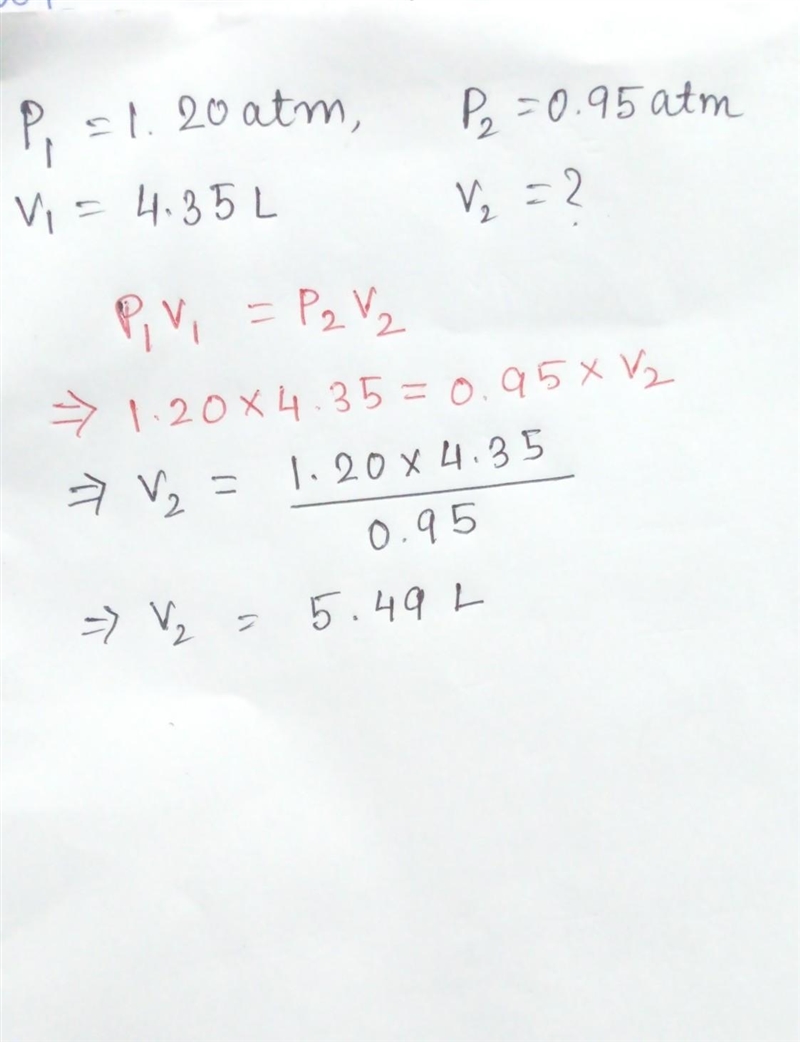 P₁ = 1.20 atm, P₂ = 0.95 atm
V₁ = 4.35 L V₂ = ?
P₁V₁ = P₂V₂
⇒ 1.20 × 4.35 = 0.95 × V₂
⇒ V₂ = 1.20 × 4.35
0.95
⇒ V₂ = 5.49 L